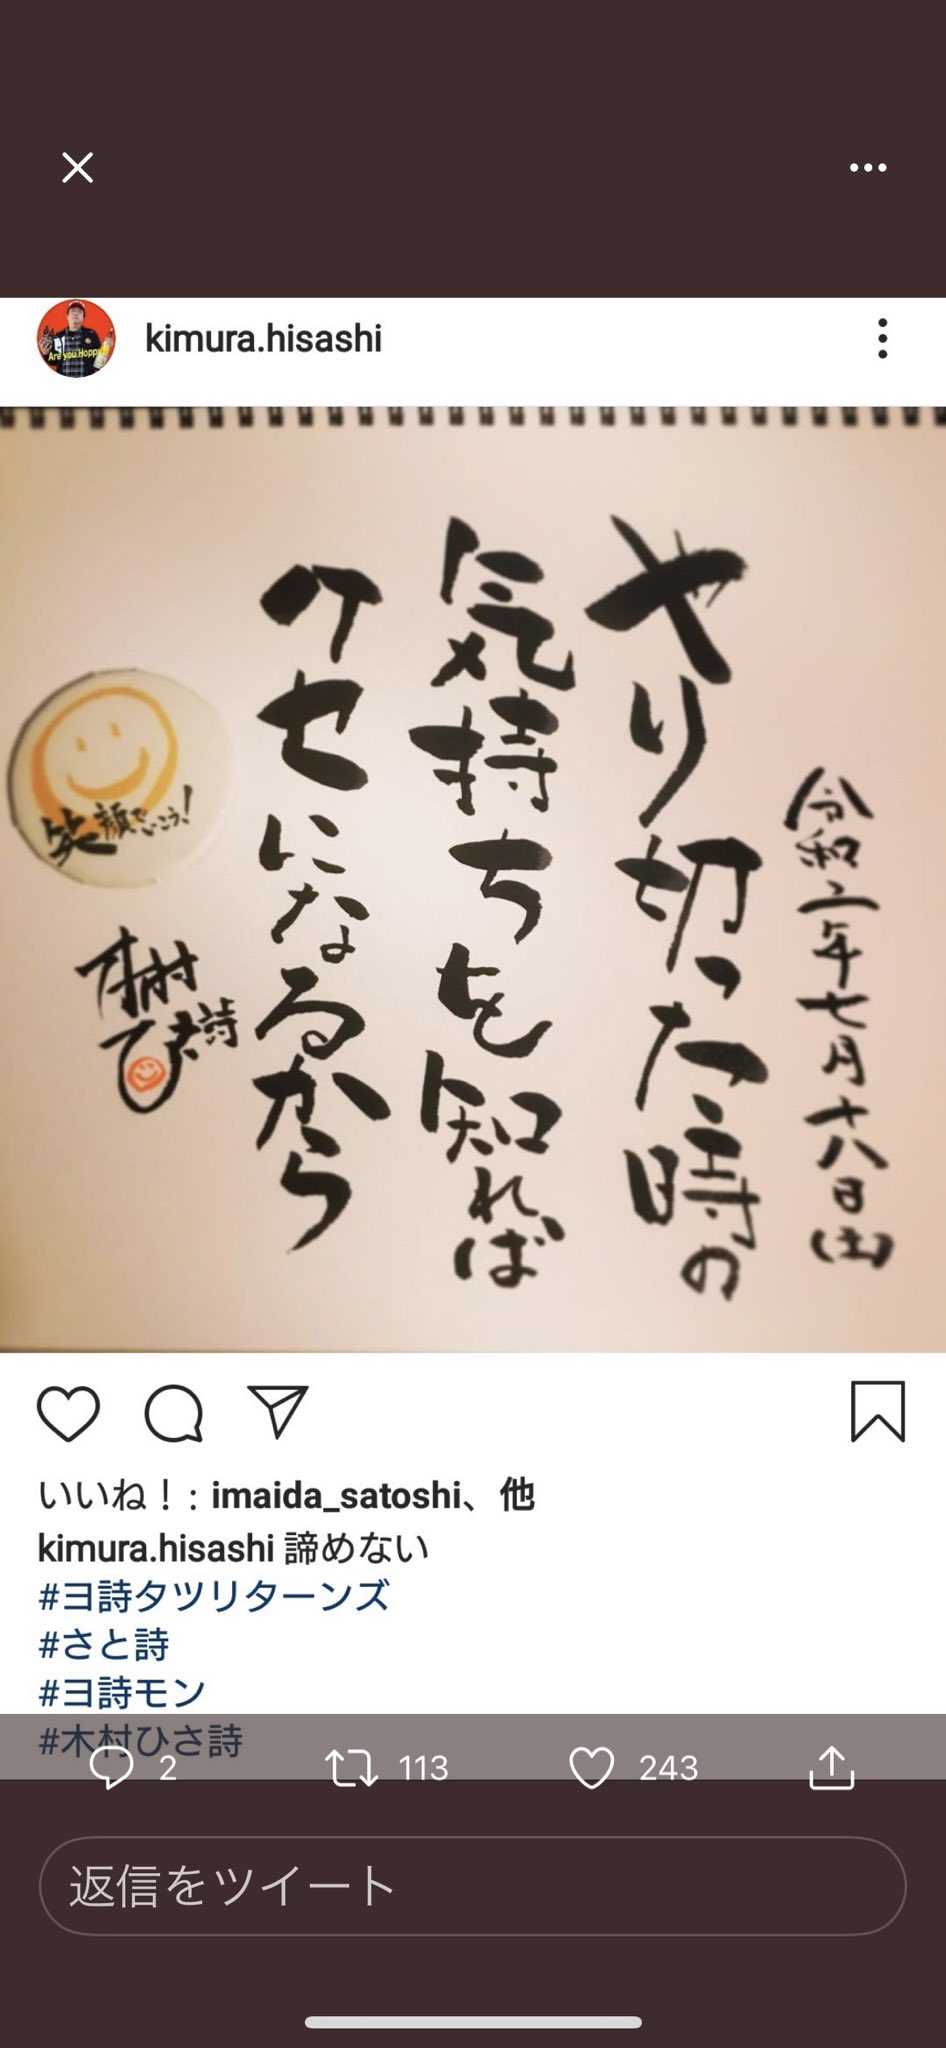 kimura.hisashi
Are you Hoppy?
令和二年七月十八日(土)
やり切った時の
気持ちを知れば
クセになるから
笑顔でいこう!
木村
ひさ詩
いいね！: imaida_satoshi、他
kimura.hisashi 諦めない
#ヨ詩タツリターンズ
#さと詩
#ヨ詩モン
#木村ひさ詩
2
113
243
返信をツイート